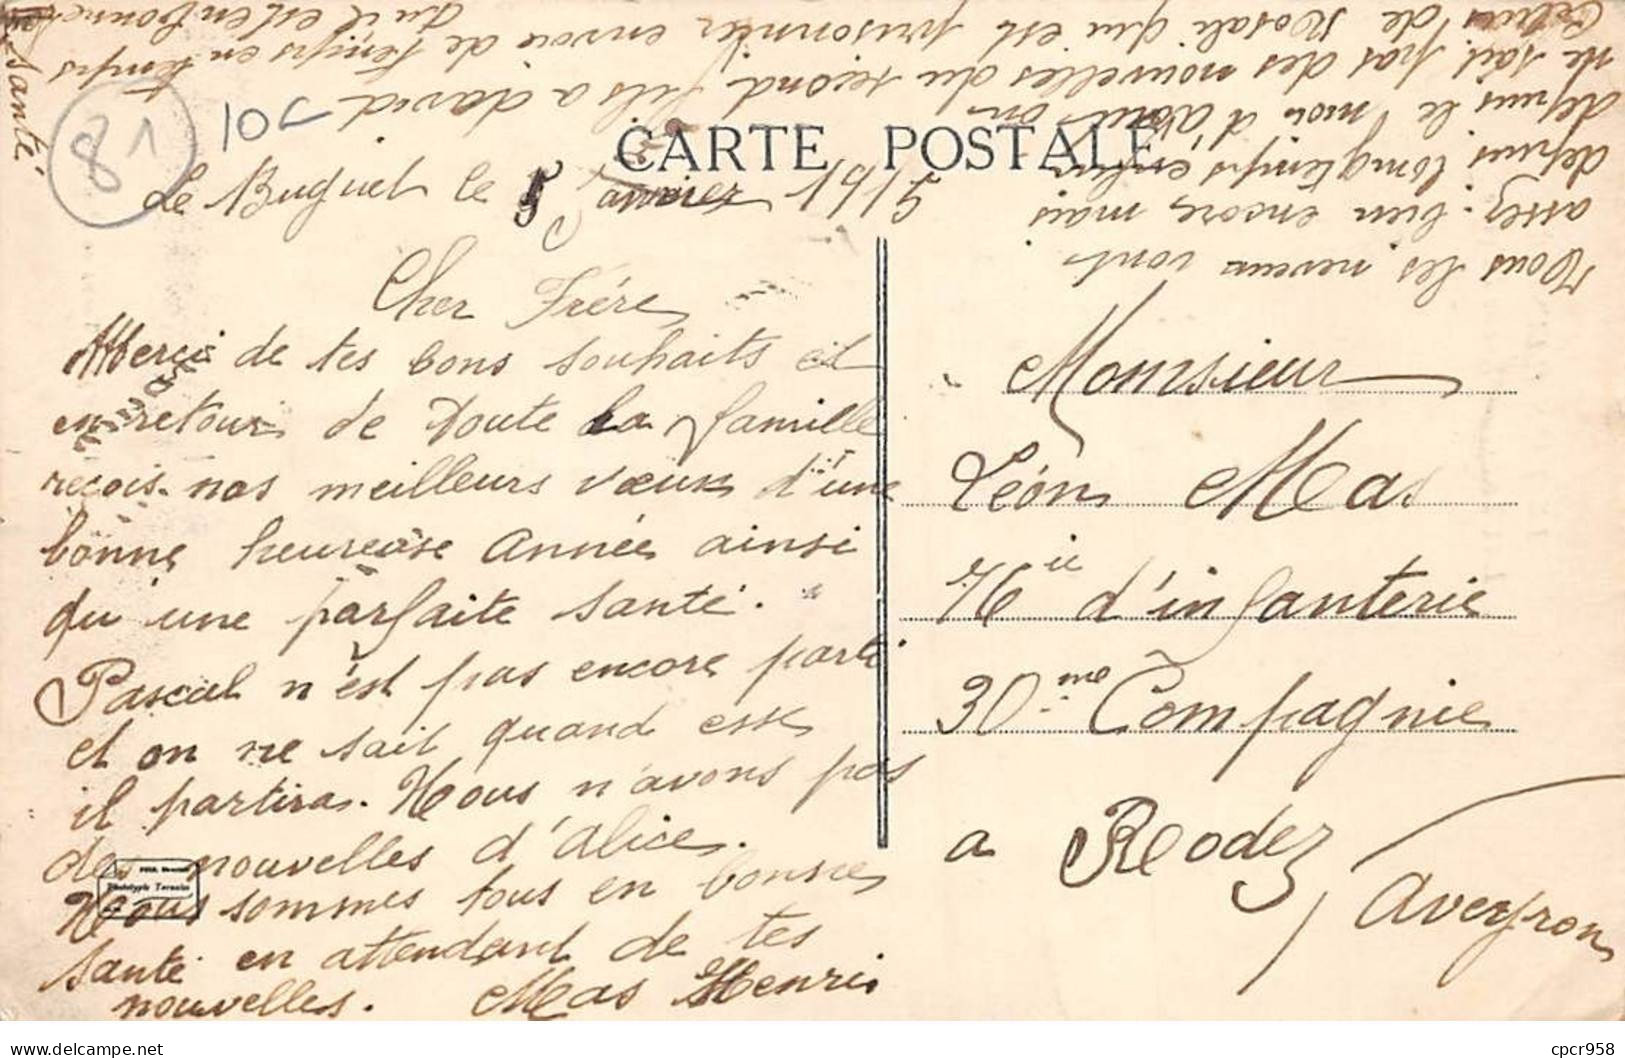 CARTE POSTALE
81
10
Le Buguet le 5 Janvier 1915
Cher Frére
Merci de tes bons souhaits et
en retour de toute la famille
reçois nos meilleurs vœux d'une
bonne heureuse année ainsi
qu'une parfaite santé.
Pascal n'est pas encore parti
et on ne sait quand esk
il partira. Nous n'avons pas
de nouvelles d'alice.
Nous sommes tous en bonne
santé en attendant de tes
nouvelles. Mas Henri
Monsieur
Léon Mas
d'infanterie
30me Compagnie
a Rodez
Aveyron
Tous les neveux vont
assez bien encore mais
depuis longtemps enfin
depuis le moi d'aout on
ne sait pas des nouvelles du second fils a david
de Rosali qui est prisonnier envoie de temps en temps
qu'il est en bonne
santé
cpcr958